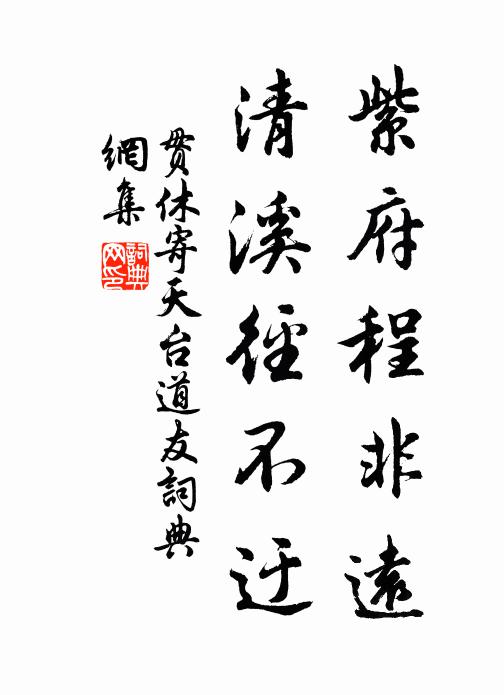 紫府程非遠
清溪徑不迂
貫休寄天台道友詞典
網集
詞典
网印